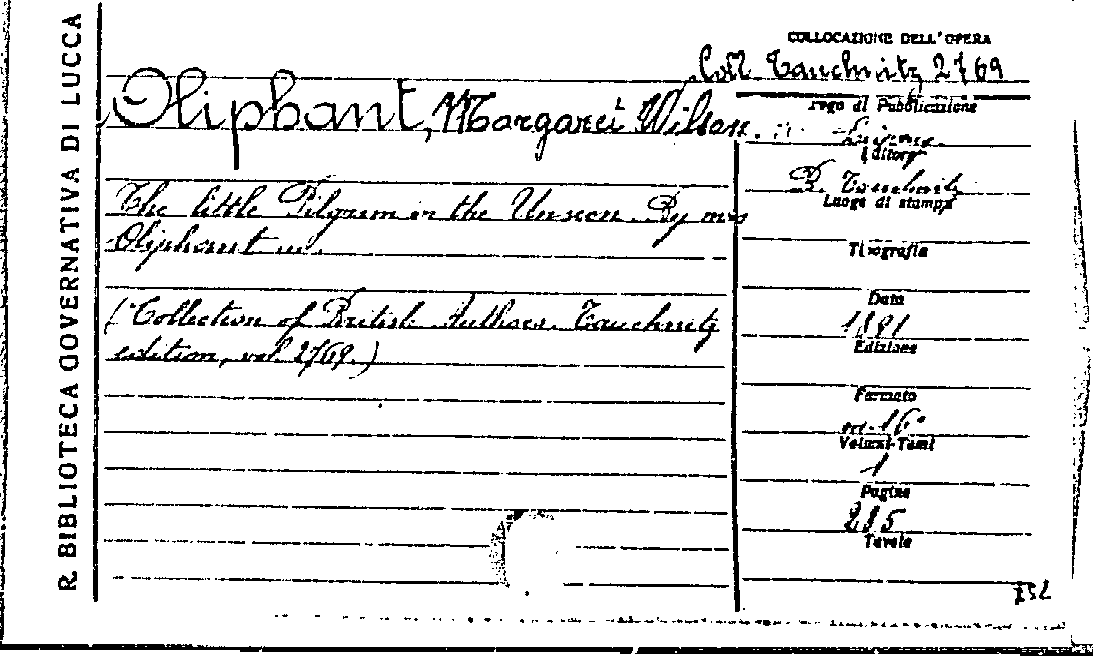 R. BIBLIOTECA GOVERNATIVA DI LUCCA
COLLOCAZIONE DELL'OPERA
Coll. Tauchnitz 2769
Oliphant, Margaret Wilson.
Luogo di Pubblicazione
Editore
The little Pilgrim in the Unseen. By mrs
B. Tauchnitz
Luogo di stampa
Oliphant ...
Tipografia
Data
(Collection of British Authors. Tauchnitz
1891
edition, vol. 2769.)
Edizione
Formato
in-16°
Volumi-Tomi
1
Pagine
285
Tavole